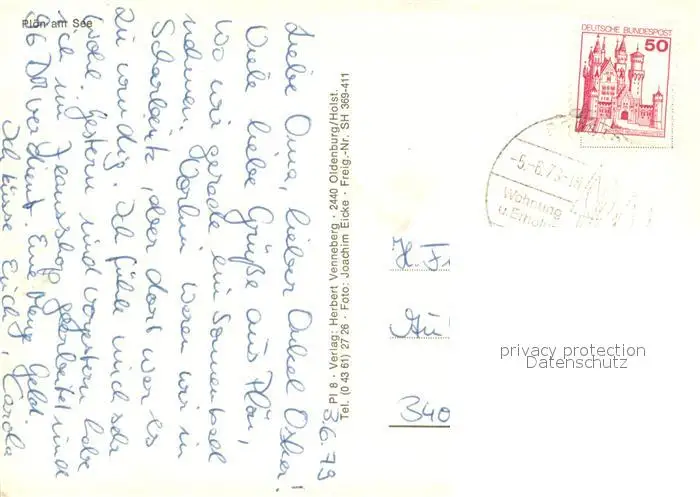 Plön am See
3.6.79
Liebe Oma, lieber Onkel Oskar!
Viele liebe Grüße aus Plön,
wo wir gerade ein Sonnenbad
nehmen. Vorhin waren wir in
Scharbeutz, aber dort war es
zu windig. Ich fühle mich sehr
wohl. Gestern und vorgestern habe
ich im gearbeitet und
96 DM verdient. Eine Menge Geld.
Ich küsse Euch, Carola
Pl 8 · Verlag: Herbert Venneberg · 2440 Oldenburg/Holst.
Tel. (0 43 61) 27 26 · Foto: Joachim Eicke · Freig.-Nr. SH 369-411
DEUTSCHE BUNDESPOST
50
-5.-6.79-18
Wohnung
u. Erhol
H. Fr
340
privacy protection
Datenschutz